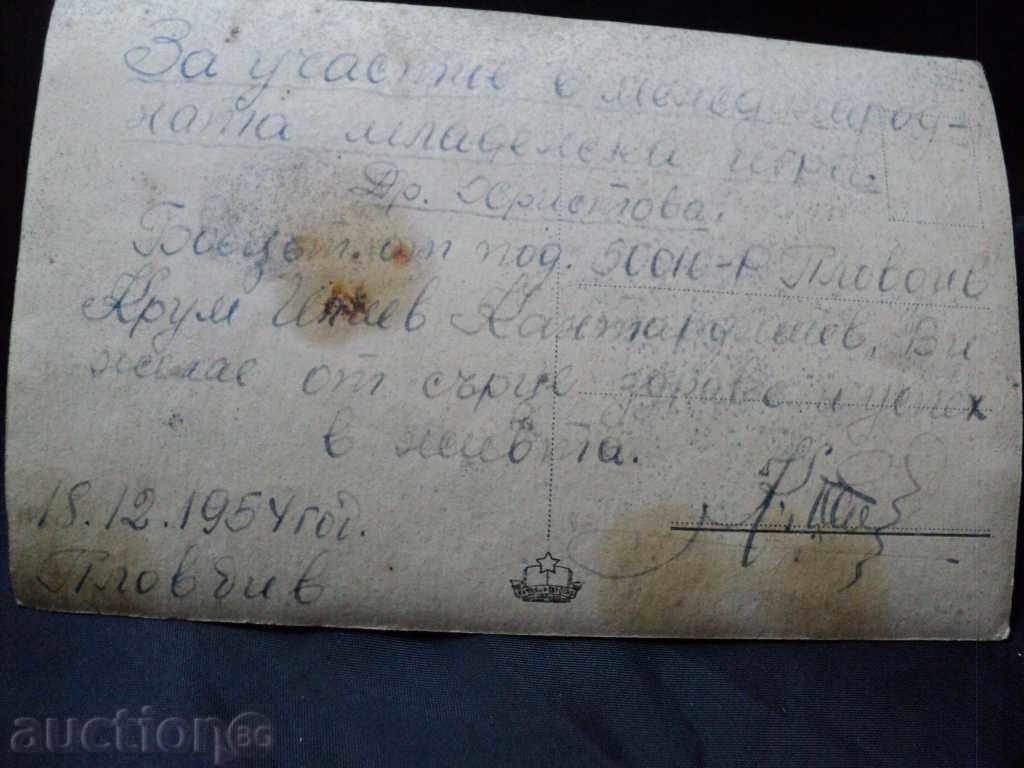 За участие в международ-
ната младежка
Др. Христова.
Боецът от под. 50010-Р Пловдив
Крум Илиев Кантарджиев, Ви
желае от сърце здраве и успех
в живота.
18.12.1954 год.
Пловдив
auction BG